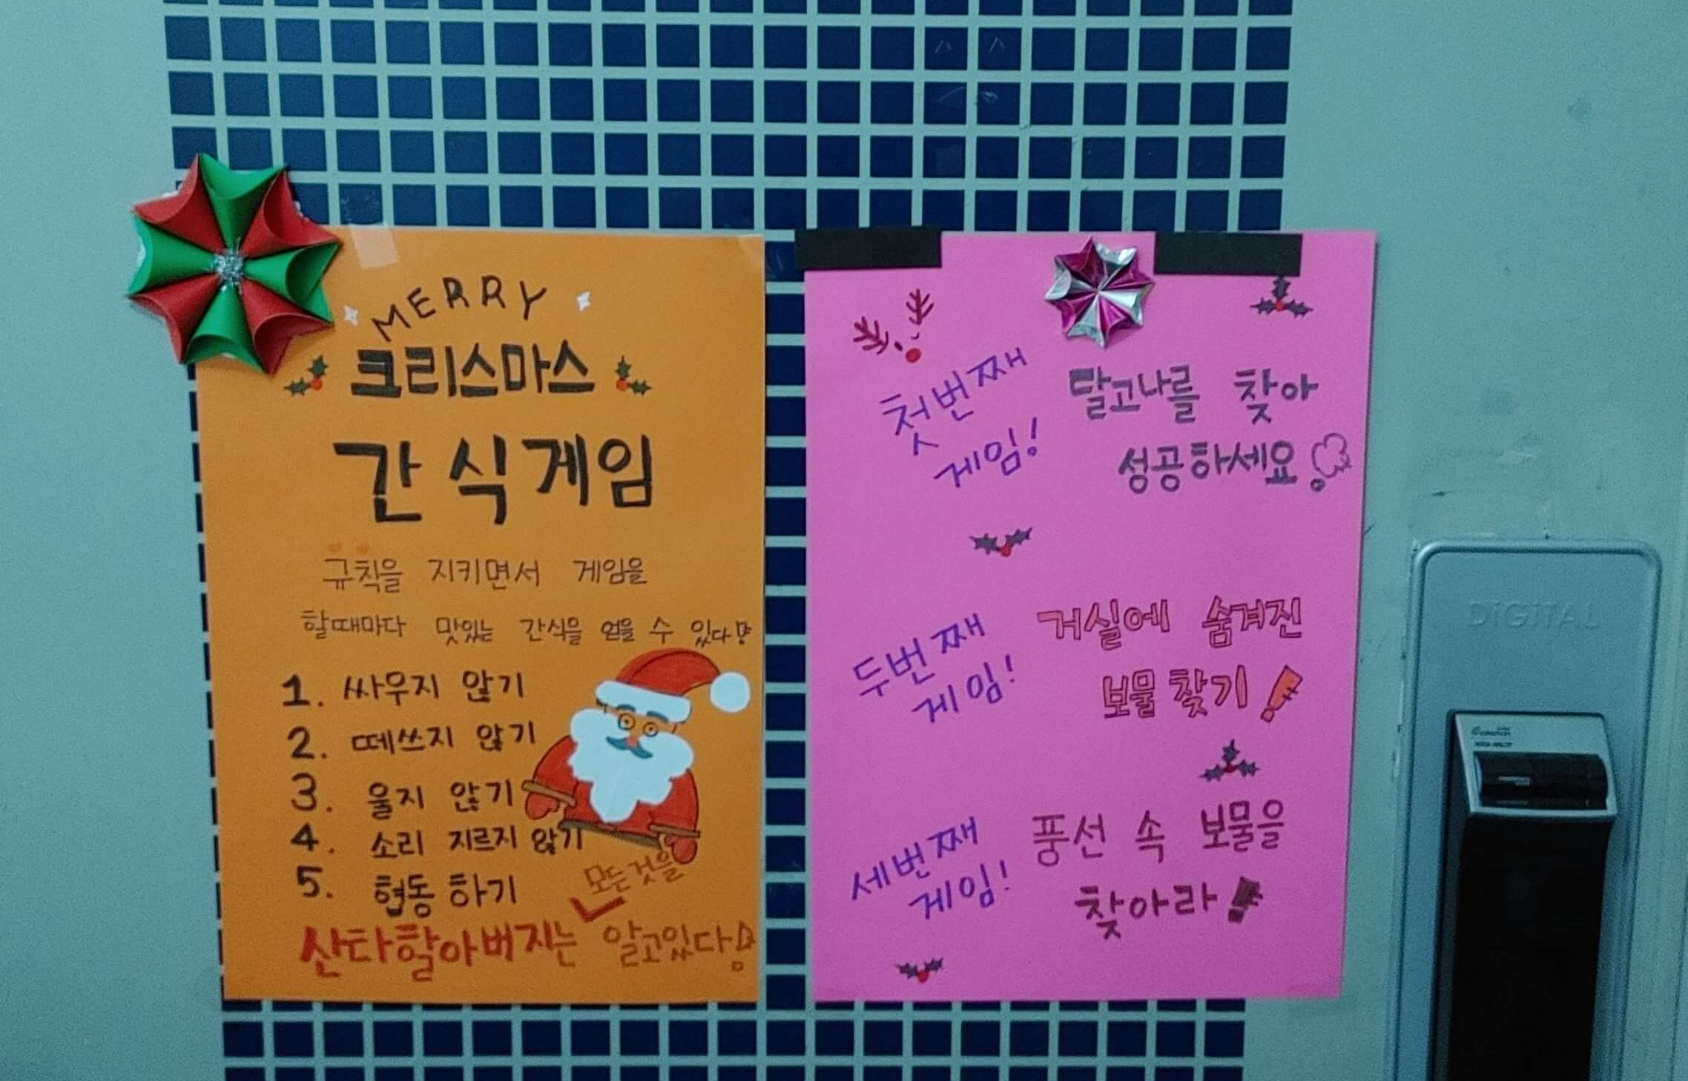 MERRY
크리스마스
간식게임
규칙을 지키면서 게임을
할때마다 맛있는 간식을 얻을 수 있다!
1. 싸우지 않기
2. 떼쓰지 않기
3. 울지 않기
4. 소리 지르지 않기
5. 협동 하기
모든것을
산타할아버지는 알고있다!
첫번째
게임!
달고나를 찾아
성공하세요!
두번째
게임!
거실에 숨겨진
보물찾기!
세번째
게임!
풍선 속 보물을
찾아라!
DIGITAL